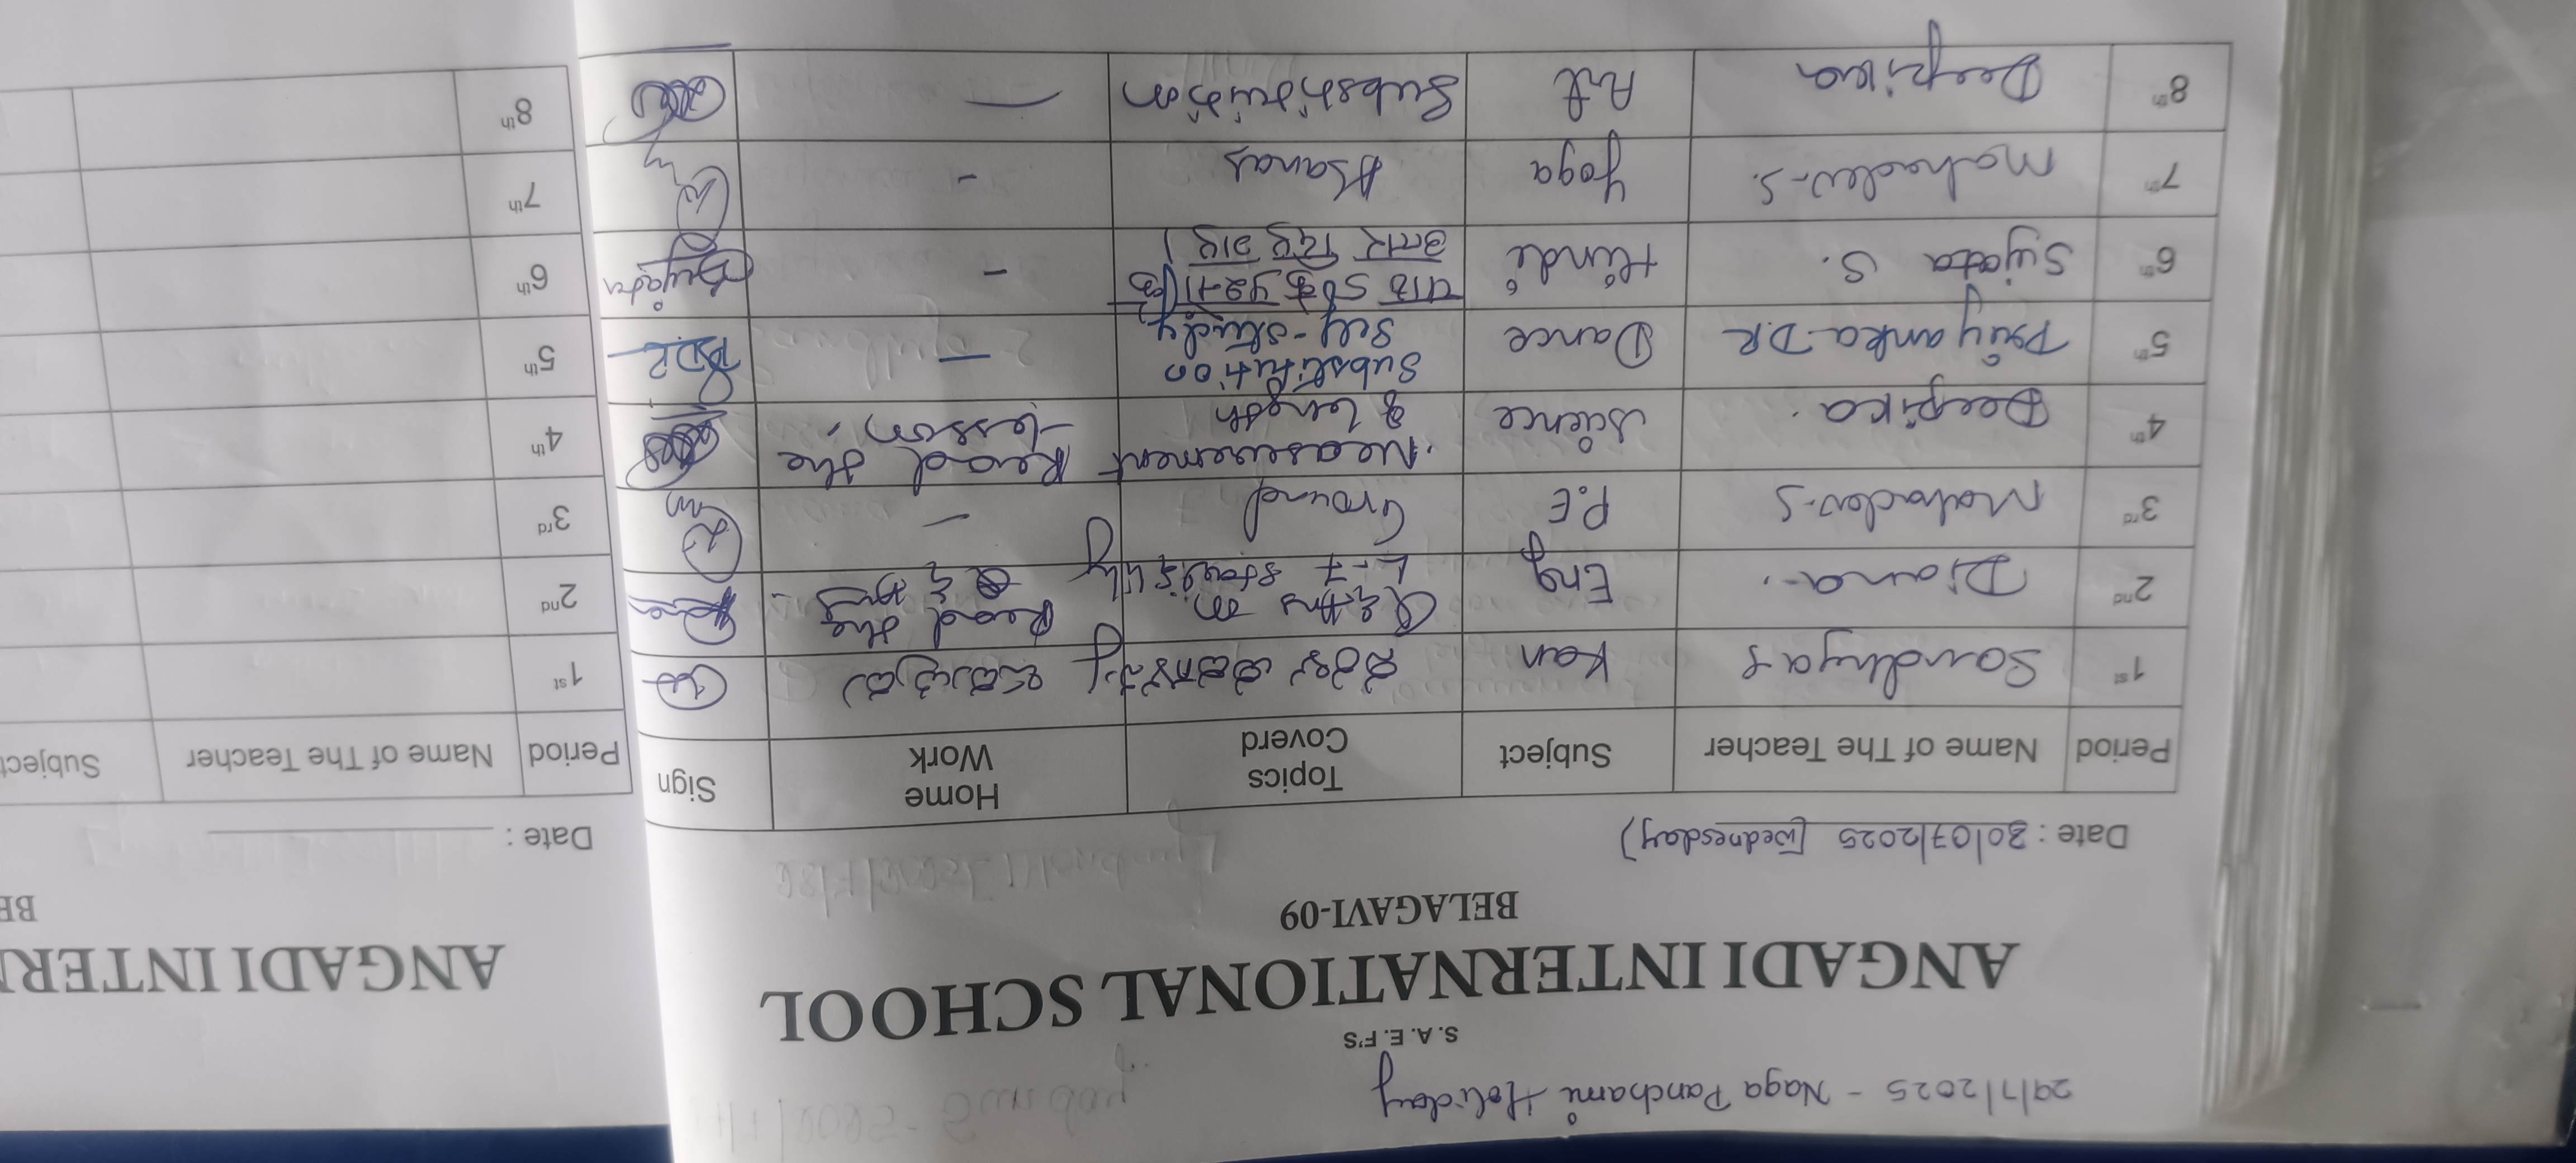 29/7/2025 - Naga Panchami Holiday
S. A. E. F'S
ANGADI INTERNATIONAL SCHOOL
BELAGAVI-09
Date : 30/07/2025 (Wednesday)
Period Name of The Teacher Subject Topics Coverd Home Work Sign
1st Sandhya S Kan
2nd Diana. Eng Q & Ans on L-7 Read the Q & Ans
3rd Mahadev-S P.E Ground -
4th Deepika. Science Measurement of length Read the lesson.
5th Priyanka D.R Dance Substitution Self-study - P.D.R
6th Sujata S. Hindi पाठ - Sujata
7th Mahadev-S. Yoga Asanas -
8th Deepika Art Substitution —
ANGADI INTER
BE
Date :
Period Name of The Teacher Subject
1st
2nd
3rd
4th
5th
6th
7th
8th